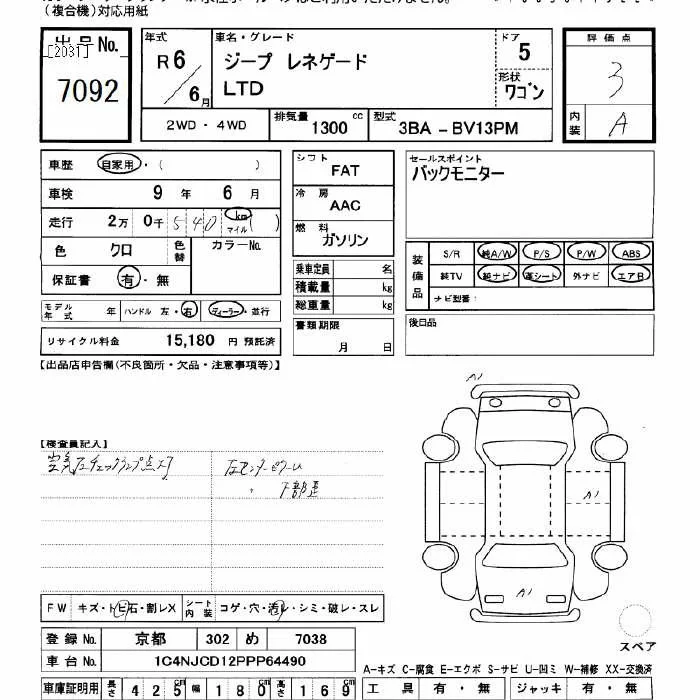 (複合機)対応用紙
出品No.
[2031]
7092
年式
R6/6月
車名・グレード
ジープ レネゲード
LTD
ドア
5
形状
ワゴン
評価点
3
内装
A
2WD・4WD
排気量
1300 cc
型式
3BA - BV13PM
車歴 自家用・( )
車検 9年 6月
走行 2万 0千 540 km マイル ( )
色 クロ 色替 カラーNo.
保証書 有・無
モデル年式 年 ハンドル 左・右 ディーラー・並行
リサイクル料金 15,180 円 預託済
シフト
FAT
冷房
AAC
燃料
ガソリン
乗車定員 名
積載量 kg
総重量 kg
書類期限
月 日
セールスポイント
バックモニター
装備品
S/R 純A/W P/S P/W ABS
純TV 純ナビ 革シート 外ナビ エアB
ナビ型番:
後日品
【出品店申告欄(不良箇所・欠品・注意事項等)】
【検査員記入】
空気圧チェックランプ点灯
左センターピラー
下部歪
A1
A1
A1
FW キズ・トビ石・割レX シート内装 コゲ・穴・汚レ・シミ・破レ・スレ
登録No. 京都 302 め 7038
車台No. 1C4NJCD12PPP64490
スペア
A-キズ C-腐食 E-エクボ S-サビ U-凹ミ W-補修 XX-交換済
車庫証明用 長さ 425cm 幅 180cm 高さ 169cm
工具 有・無 ジャッキ 有・無